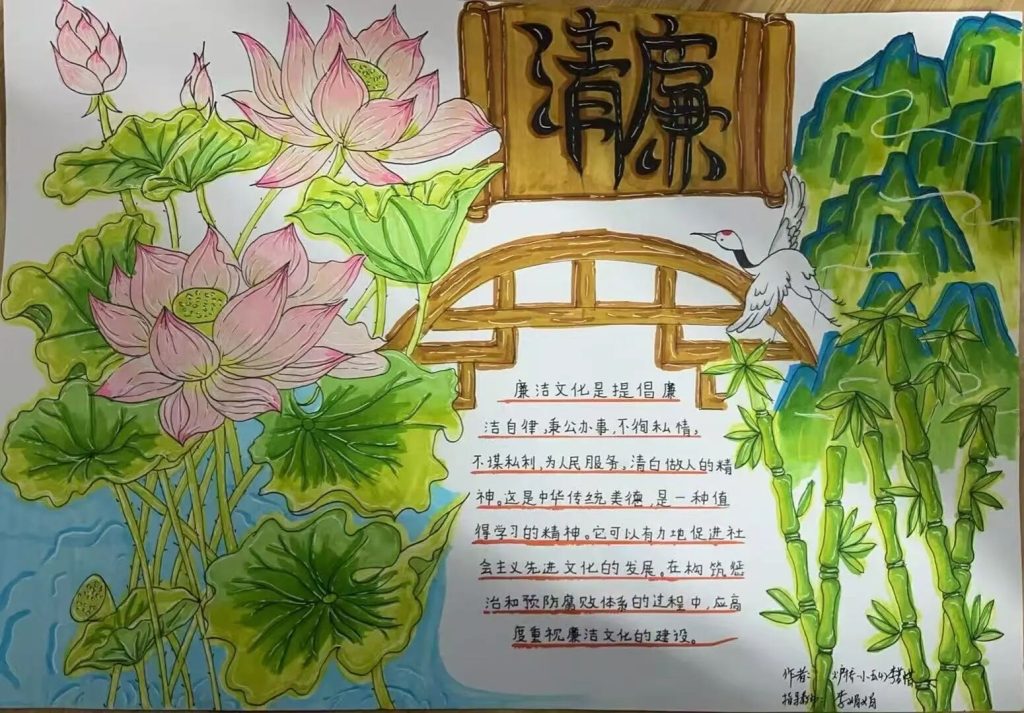 清廉
廉洁文化是提倡廉
洁自律,秉公办事,不徇私情,
不谋私利,为人民服务,清白做人的精
神。这是中华传统美德,是一种值
得学习的精神。它可以有力地促进社
会主义先进文化的发展。在构筑惩
治和预防腐败体系的过程中,应高
度重视廉洁文化的建设。
作者:
指导教师:李娟娟